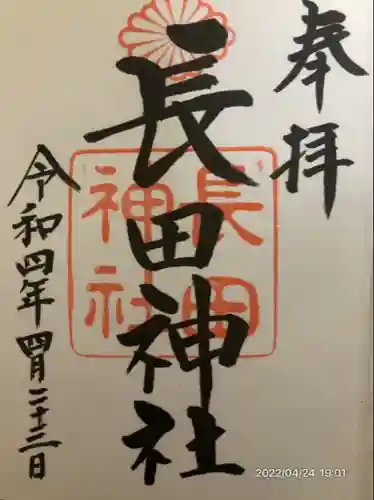 奉拝
長田神社
長田
神社
令和四年四月二十三日
2022/04/24 19:01